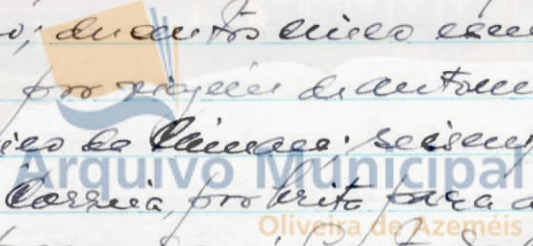 o; duzentos cinco
por viagem de autom
ico da Câmara; seiscen
Correia, por brita para a
Arquivo Municipal
Oliveira de Azeméis